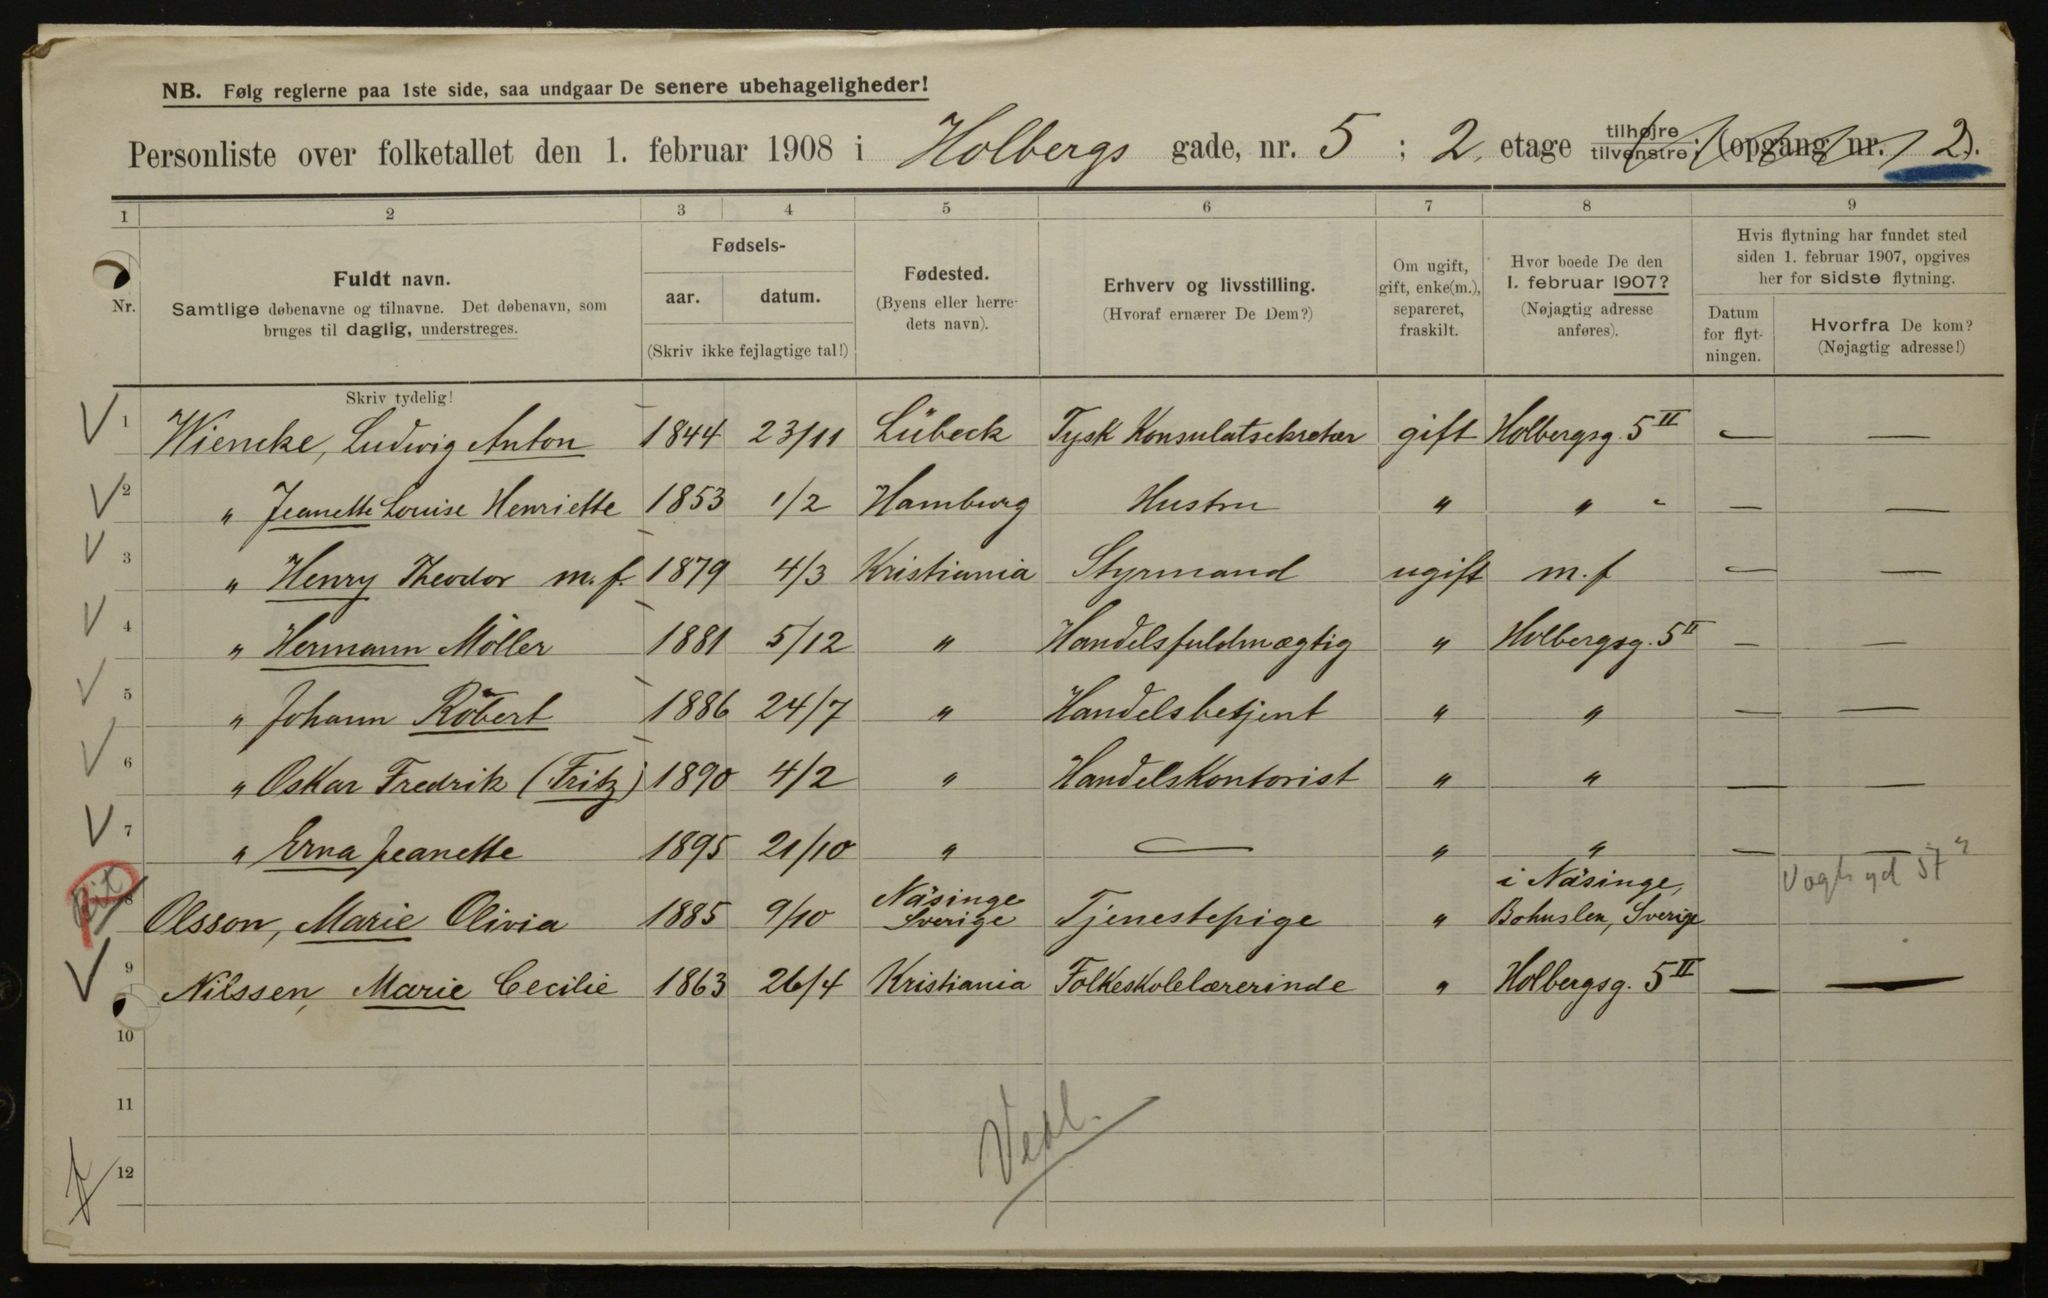 NB. Følg reglerne paa 1ste side, saa undgaar De senere ubehageligheder!
Personliste over folketallet den 1. februar 1908 i Holbergs gade, nr. 5 ; 2. etage tilhøjre tilvenstre; (opgang nr. 2).
1 2 3 4 5 6 7 8 9
Nr.
Fuldt navn.
Samtlige døbenavne og tilnavne. Det døbenavn, som
bruges til daglig, understreges.
Fødsels-
aar. datum.
(Skriv ikke fejlagtige tal!)
Fødested.
(Byens eller herre-
dets navn).
Erhverv og livsstilling.
(Hvoraf ernærer De Dem?)
Om ugift,
gift, enke(m.),
separeret,
fraskilt.
Hvor boede De den
1. februar 1907?
(Nøjagtig adresse
anføres).
Hvis flytning har fundet sted
siden 1. februar 1907, opgives
her for sidste flytning.
Datum
for flyt-
ningen.
Hvorfra De kom?
(Nøjagtig adresse!)
Skriv tydelig!
1 Wiencke, Ludwig Anton 1844 23/11 Lübeck Tysk Konsulatsekretær gift Holbergsg. 5 II — —
2 " Jeanette Louise Henriette 1853 1/2 Hamburg Hustru " " " — —
3 " Henry Theodor m. f. 1879 4/3 Kristiania Styrmand ugift m. f — —
4 " Hermann Möller 1881 5/12 " Handelsfuldmægtig " Holbergsg. 5 II — —
5 " Johann Robert 1886 24/7 " Handelsbetjent " " — —
6 " Oskar Fredrik (Fritz) 1890 4/2 " Handelskontorist " " — —
7 " Erna Jeanette 1895 21/10 " — " " — —
8 Olsson, Marie Olivia 1885 9/10 Näsinge Sverige Tjenestepige " i Näsinge, Bohuslen, Sverige
9 Nilssen, Marie Cecilie 1863 26/4 Kristiania Folkeskolelærerinde " Holbergsg. 5 II — —
10
11
12
Vedl.